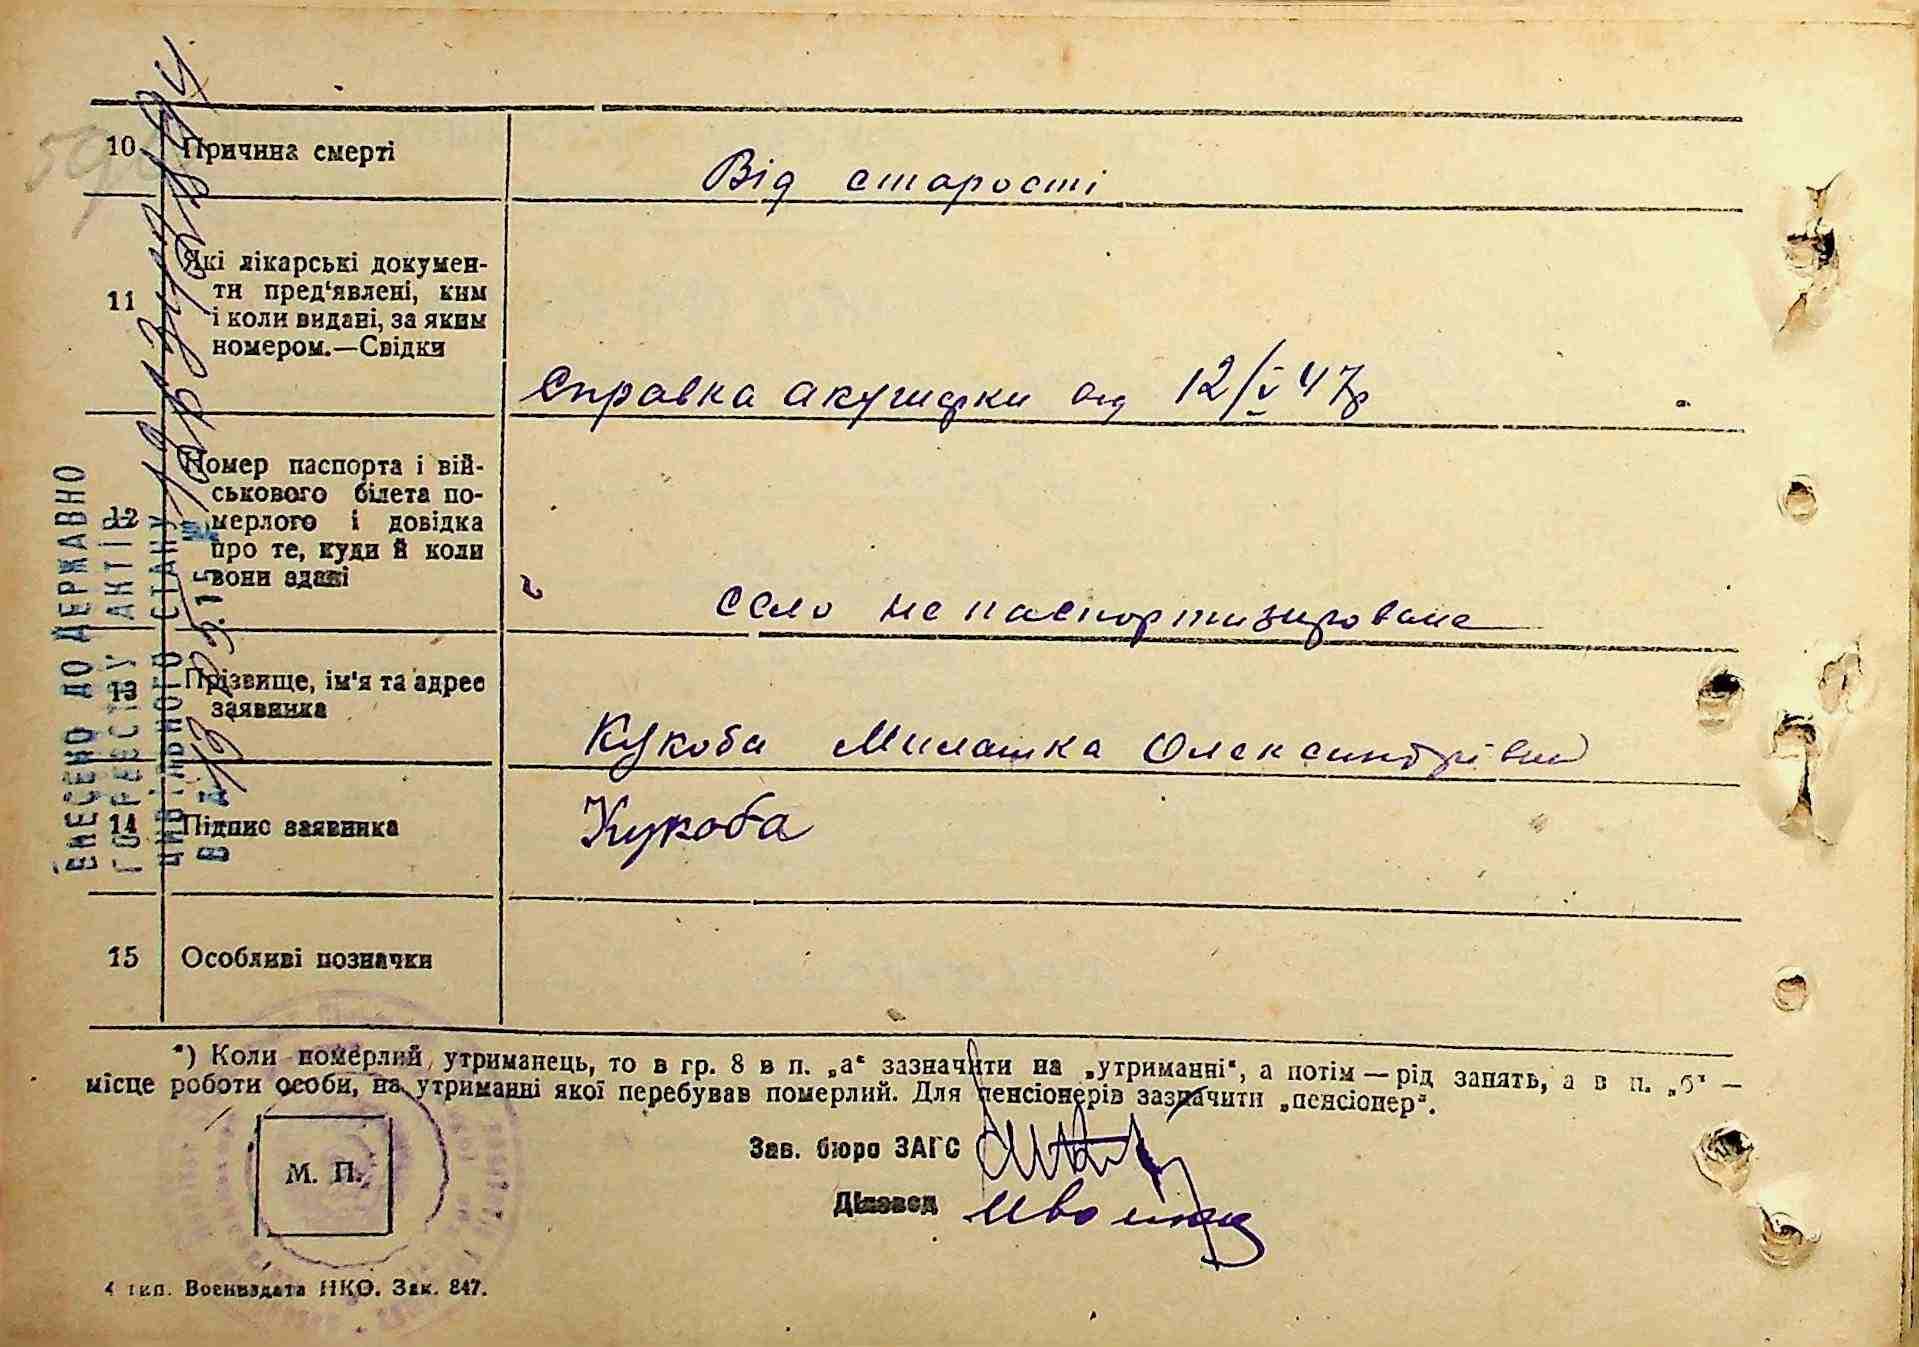 10 Причина смерті
Від старості
11 Які лікарські докумен-
ти пред'явлені, ким
і коли видані, за яким
номером.—Свідки
Справка акушерки від 12/V 47р
12 Номер паспорта і вій-
ськового білета по-
мерлого і довідка
про те, куди й коли
вони здані
село не паспортизироване
13 Прізвище, ім'я та адрес
заявника
Кукоба Милашка Олександрівна
14 Підпис заявника
Кукоба
15 Особливі позначки
*) Коли померлий утриманець, то в гр. 8 в п. „а“ зазначити на „утриманні“, а потім — рід занять, а в п. „б“ —
місце роботи особи, на утриманні якої перебував померлий. Для пенсіонерів зазначити „пенсіонер“.
Зав. бюро ЗАГС
М. П.
Діловод
4 тип. Воениздата НКО. Зак. 847.
ВНЕСЕНО ДО ДЕРЖАВНО
ГО РЕЄСТРУ АКТІВ
ЦИВІЛЬНОГО СТАНУ